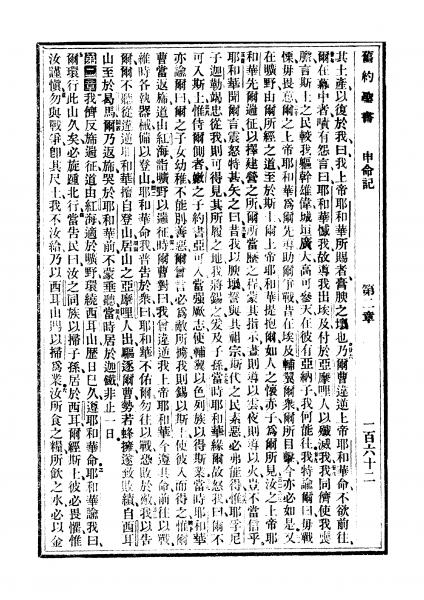 舊約聖書 申命記 第二章 一百六十二
其土產以復於我曰我上帝耶和華所賜者膏腴之壤也乃爾曹違逆上帝耶和華命不欲前往
爾在幕中者嘖有怨言曰耶和華憾我故導我出埃及付於亞摩哩人以殲滅我我同儕使我喪
膽言斯土之民較我軀幹雄偉城垣廣大高可參天在彼有亞納子我何能往我特諭爾曰毋戰
慄毋畏葸爾之上帝耶和華為爾先導助爾爭戰昔在埃及輔翼爾眾爾所目擊今亦必如是又
在曠野山由爾所經之道至於斯土爾上帝耶和華提抱爾如人之懷赤子為爾所見汝之上帝耶
和華先爾遄征以擇建營之所爾所當歷之程蒙其指示晝則導以雲夜則導以火豈不當信乎
耶和華聞爾言震怒特甚矢之曰昔我以腴壤誓與其祖宗斯代之民素惡必弗能得惟耶孚尼
子迦勒竭忠從我則可得見其所履之地我將錫之及子孫當時耶和華緣爾故怒我曰爾不
可入斯土惟侍爾側者嫩之子約書亞可入當强厥志使輔翼以色列族以得斯業當時耶和華
亦諭爾曰爾之子女幼稚不能別善惡爾嘗言必為敵所擄我則錫以斯土使彼入而得之惟爾
曹當返施道由紅海曠野以遄征時爾曹對曰我嘗違逆我上帝耶和華今遵其命前往以戰
維時各執器械備以登山耶和華命我普告於眾曰耶和華不佑爾勿往以戰恐敗於敵我以告
爾爾不聽從違逆耶和華擅自登山居山之亞摩哩人出驅逐爾曹勢若蜂擁遂致敗績自西耳
山至於曷馬爾乃返施哭於耶和華前不蒙垂聽當時居於迦鐵非止一日
第二章我儕反施遄征道由紅海適於曠野環繞西耳山歷日已久遵耶和華命耶和華諭我曰
爾環行此山久矣必旋踵北行當告民曰汝之同族以掃子孫居於西耳爾經斯土彼必畏懼惟
汝謹愼勿與戰爭即其尺土我不汝給乃以西耳山以掃為業汝所食之糧所飲之水必以金